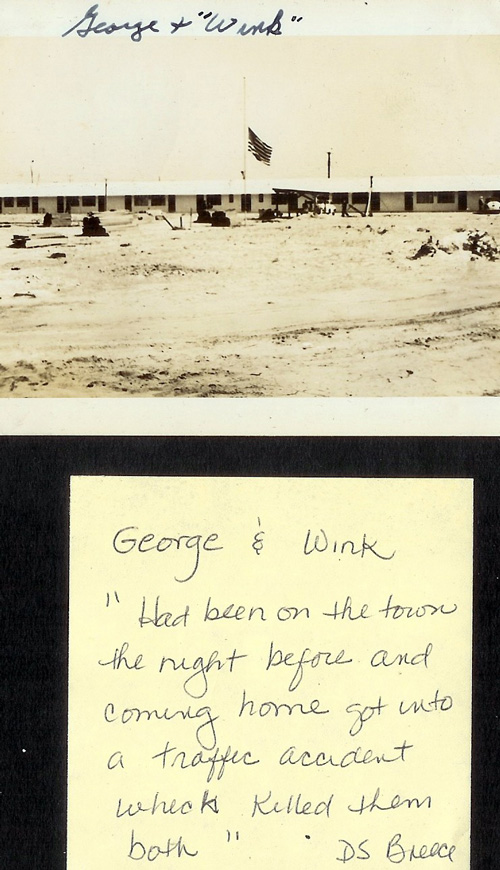 George + "Wink"
George & Wink
" Had been on the town
the night before and
coming home got into
a traffic accident
which killed them
both "
DS Breece